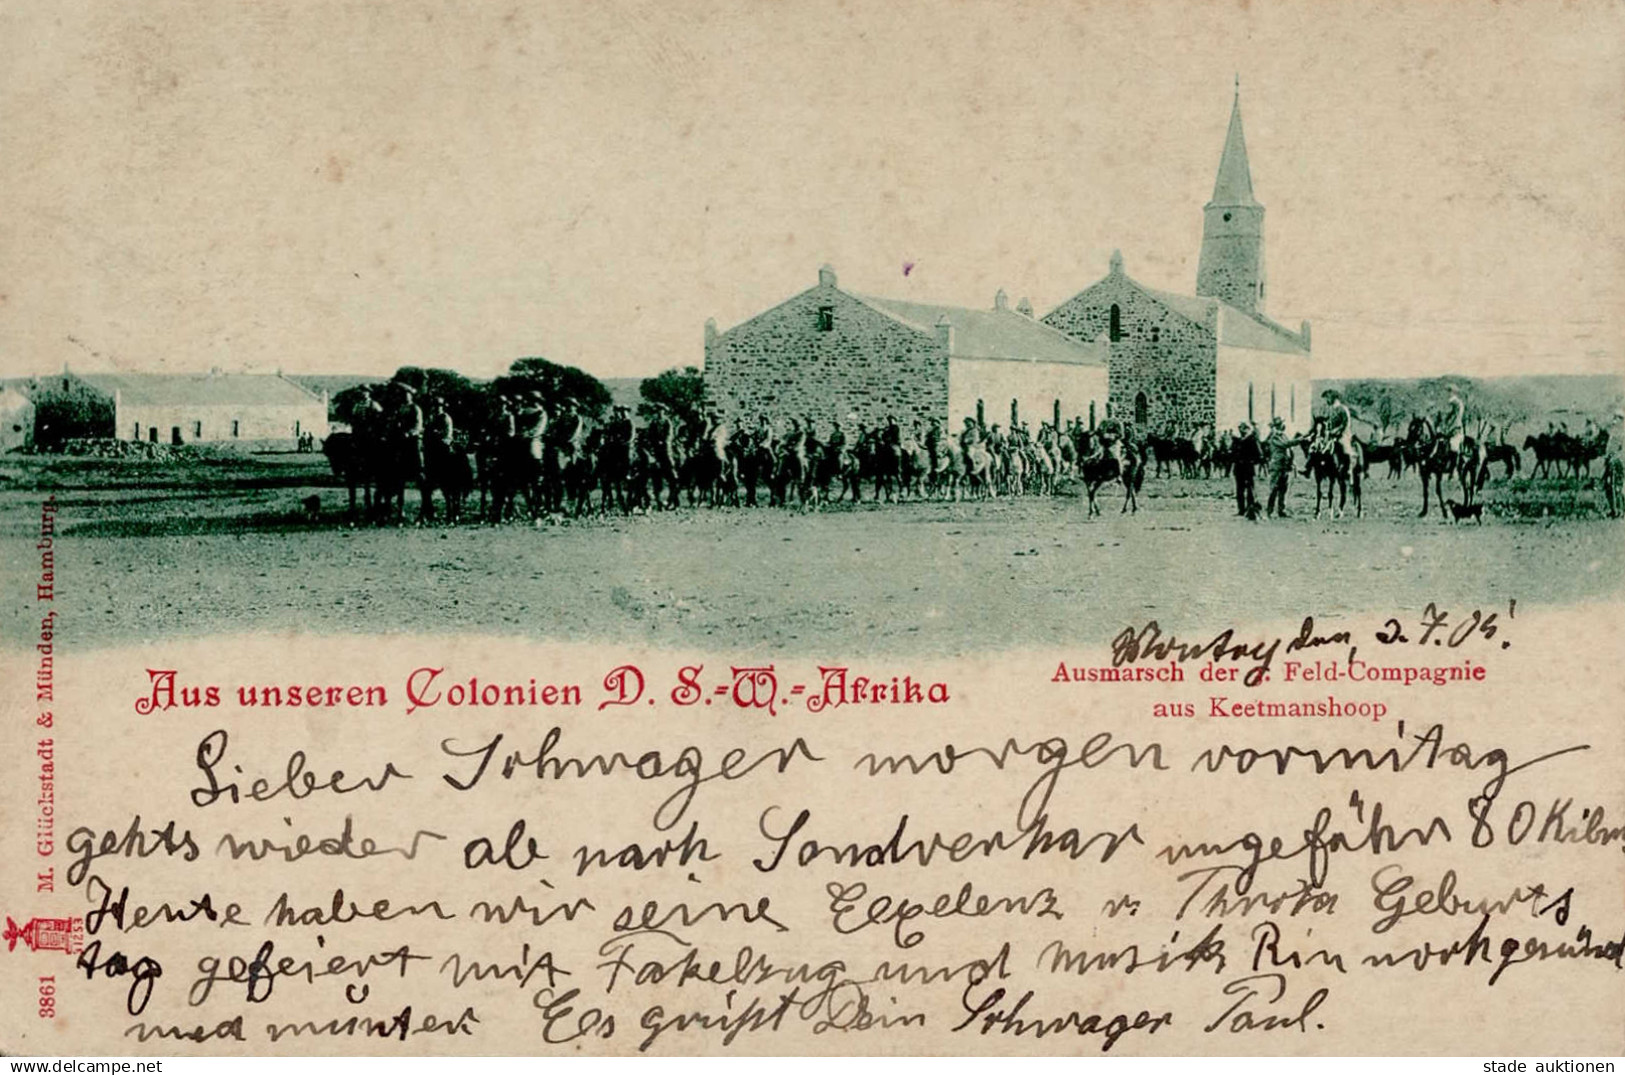 Montag den, 3. 7. 05!
Aus unseren Colonien D. S.-W.-Afrika
Ausmarsch der Feld-Compagnie
aus Keetmanshoop
Lieber Schwager morgen vormitag
gehts wieder ab nach Sandverhar ungefähr 80 Kilm.
Heute haben wir seine Exelenz v. Throta Geburts
tag gefeiert mit Fakelzug und Musik Bin noch gesund
und munter Es grüßt Dein Schwager Paul.
M. Glückstadt & Münden, Hamburg.
3861
stade auktionen
www.delcampe.net